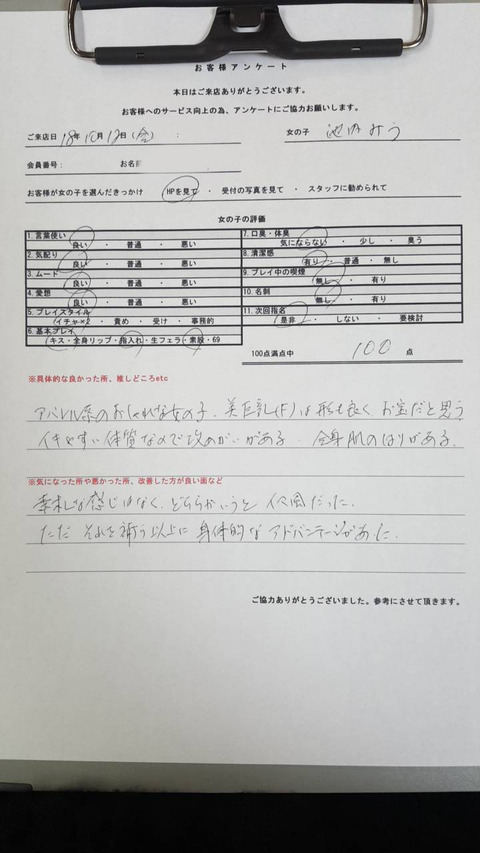 お客様アンケート
本日はご来店ありがとうございます。
お客様へのサービス向上の為、アンケートにご協力お願いします。
ご来店日 18年10月12日(金) : 女の子
会員番号: お名前
お客様が女の子を選んだきっかけ HPを見て ・ 受付の写真を見て ・ スタッフに勧められて
女の子の評価
1.言葉使い
良い ・ 普通 ・ 悪い
2.気配り
良い ・ 普通 ・ 悪い
3.ムード
良い ・ 普通 ・ 悪い
4.愛想
良い ・ 普通 ・ 悪い
5.プレイスタイル
イチャ×2 ・ 責め ・ 受け ・ 事務的
6.基本プレイ
キス・全身リップ・指入れ・生フェラ・素股・69
7.口臭・体臭
気にならない ・ 少し ・ 臭う
8.清潔感
有り ・ 普通 ・ 無し
9.プレイ中の喫煙
無し ・ 有り
10.名刺
無し ・ 有り
11.次回指名
是非 ・ しない ・ 要検討
100点満点中 100 点
※具体的な良かった所、推しどころetc
アパレル系のおしゃれな女の子。美巨乳(F)は形も良く お宝だと思う
イキやすい体質なので攻めがいがある。全身肌のはりがある。
※気になった所や悪かった所、改善した方が良い面など
な感じはなく、どちらかいうと だった。
ただ それを補う以上に 身体的な アドバンテージがあった。
ご協力ありがとうございました。参考にさせて頂きます。